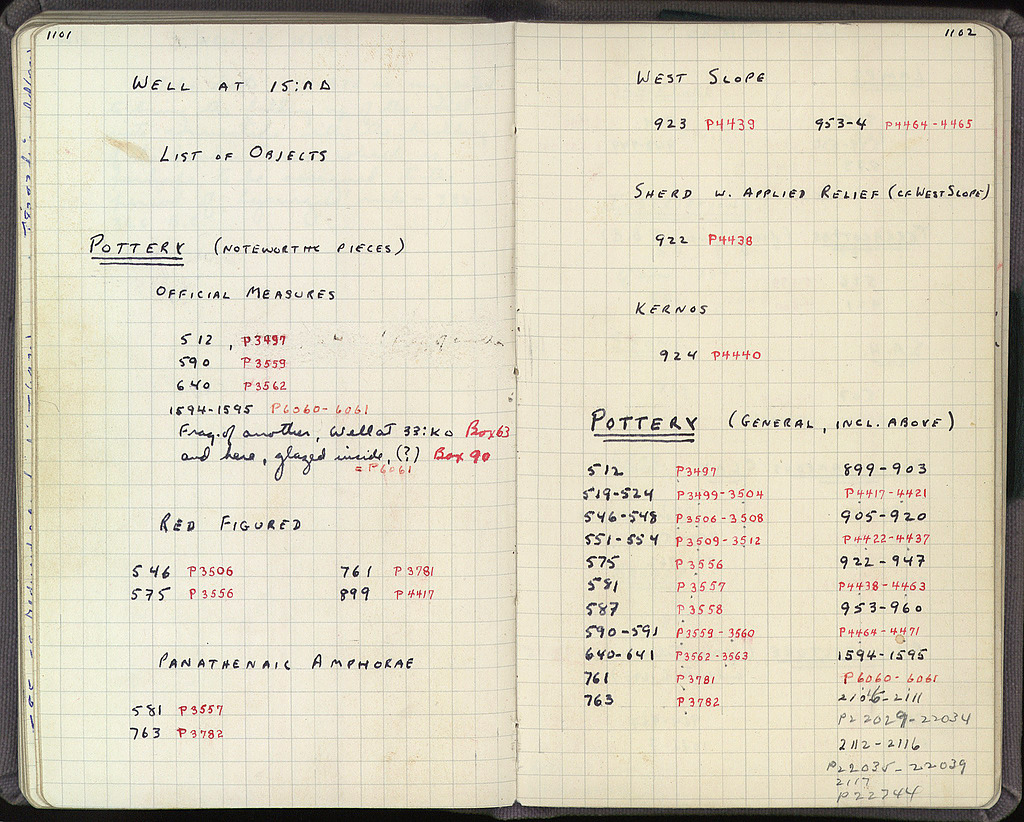 1101
WELL AT 15:ΠΔ
LIST OF OBJECTS
POTTERY (NOTEWORTHY PIECES)
OFFICIAL MEASURES
512, P3497
590 P3559
640 P3562
1594-1595 P6060-6061
Frag. of another, Well at 33:KO Box 63
and here, glazed inside, (?) Box 90
= P6061
RED FIGURED
546 P3506 761 P3781
575 P3556 899 P4417
PANATHENAIC AMPHORAE
581 P3557
763 P3782
1102
WEST SLOPE
923 P4439 953-4 P4464-4465
SHERD W. APPLIED RELIEF (CF WEST SLOPE)
922 P4438
KERNOS
924 P4440
POTTERY (GENERAL, INCL. ABOVE)
512 P3497 899-903
519-524 P3499-3504 P4417-4421
546-548 P3506-3508 905-920
551-554 P3509-3512 P4422-4437
575 P3556 922-947
581 P3557 P4438-4463
587 P3558 953-960
590-591 P3559-3560 P4464-4471
640-641 P3562-3563 1594-1595
761 P3781 P6060-6061
763 P3782 2106-2111
P22029-22034
2112-2116
P22035-22039
2117
P22744